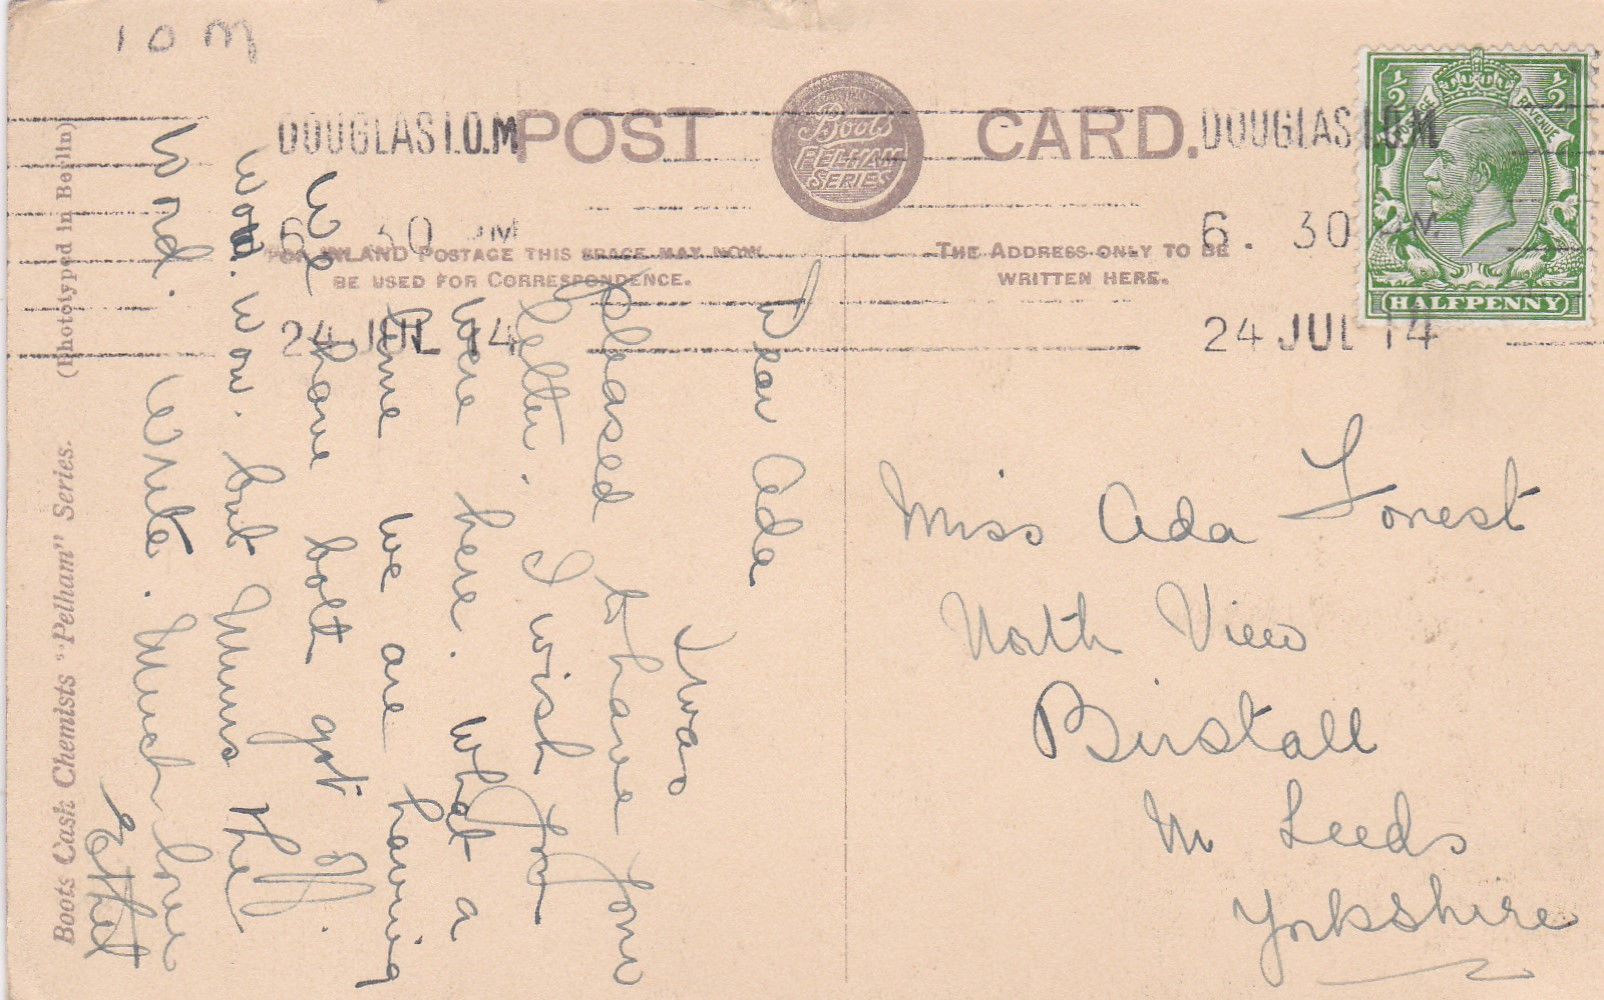 I O M
DOUGLAS I.O.M
6. 30 PM
24 JUL 14
POST CARD.
Boots
PELHAM
SERIES
DOUGLAS I.O.M
6. 30 PM.
24 JUL 14
½ ½
POSTAGE REVENUE
HALFPENNY
FOR INLAND POSTAGE THIS SPACE MAY NOW
BE USED FOR CORRESPONDENCE.
THE ADDRESS ONLY TO BE
WRITTEN HERE.
Dear Ada
I was
pleased to have your
letter. I wish you
were here. What a
time we are having
We have both got off.
Won. Won. but Mums the
Word. Write. Much love
Ethel
Miss Ada Forrest
North View
Birstall
Nr Leeds
Yorkshire
Boots Cash Chemists "Pelham" Series. (Phototyped in Berlin)